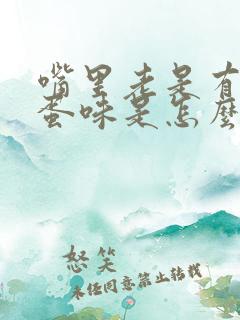 嘴里老是有
蛋味是怎麼
怒笑
未经同意禁止转载